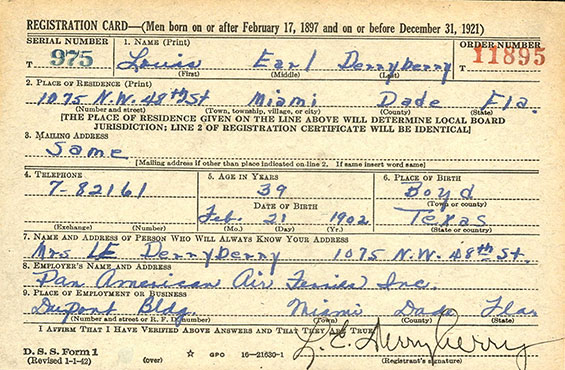 REGISTRATION CARD—(Men born on or after February 17, 1897 and on or before December 31, 1921)
SERIAL NUMBER 1. NAME (Print) ORDER NUMBER
T 975 Louis Earl Derryberry T 11895
(First) (Middle) (Last)
2. PLACE OF RESIDENCE (Print)
1075 N.W. 48th St Miami Dade Fla.
(Number and street) (Town, township, village, or city) (County) (State)
[THE PLACE OF RESIDENCE GIVEN ON THE LINE ABOVE WILL DETERMINE LOCAL BOARD
JURISDICTION; LINE 2 OF REGISTRATION CERTIFICATE WILL BE IDENTICAL]
3. MAILING ADDRESS
Same
[Mailing address if other than place indicated on line 2. If same insert word same]
4. TELEPHONE 5. AGE IN YEARS 6. PLACE OF BIRTH
7-82161 39 Boyd
DATE OF BIRTH (Town or county)
Feb. 21 1902 Texas
(Exchange) (Number) (Mo.) (Day) (Yr.) (State or country)
7. NAME AND ADDRESS OF PERSON WHO WILL ALWAYS KNOW YOUR ADDRESS
Mrs LE Derryberry 1075 N.W. 48th St.
8. EMPLOYER'S NAME AND ADDRESS
Pan American Air Ferries Inc.
9. PLACE OF EMPLOYMENT OR BUSINESS
Dupont Bldg. Miami Dade Fla
(Number and street or R. F. D. number) (Town) (County) (State)
I AFFIRM THAT I HAVE VERIFIED ABOVE ANSWERS AND THAT THEY ARE TRUE.
D. S. S. Form 1 L. E. Derryberry
(Revised 1-1-42) (over) ☆ GPO 16—21630-1 (Registrant's signature)